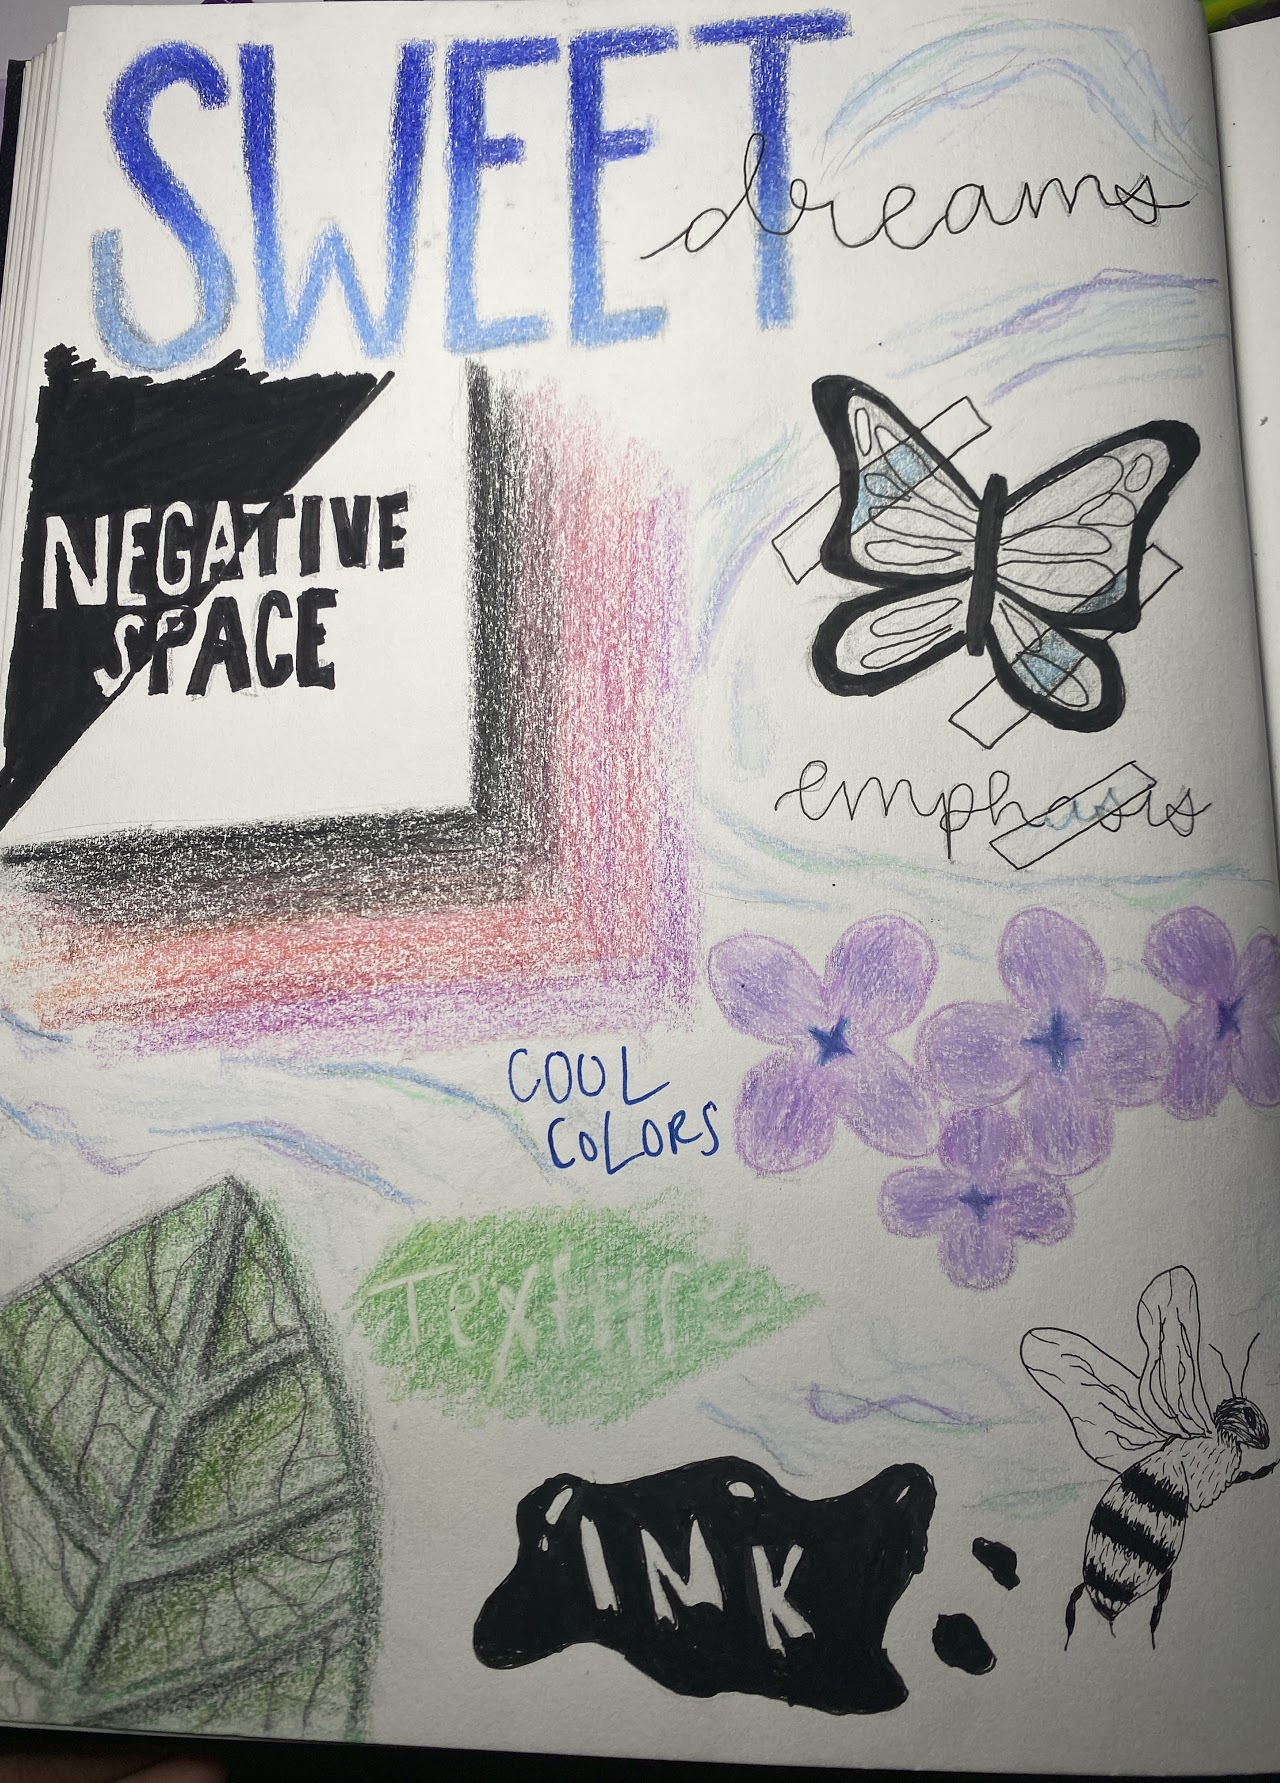 SWEET
dreams
NEGATIVE
SPACE
emphasis
COOL
COLORS
Texture
INK